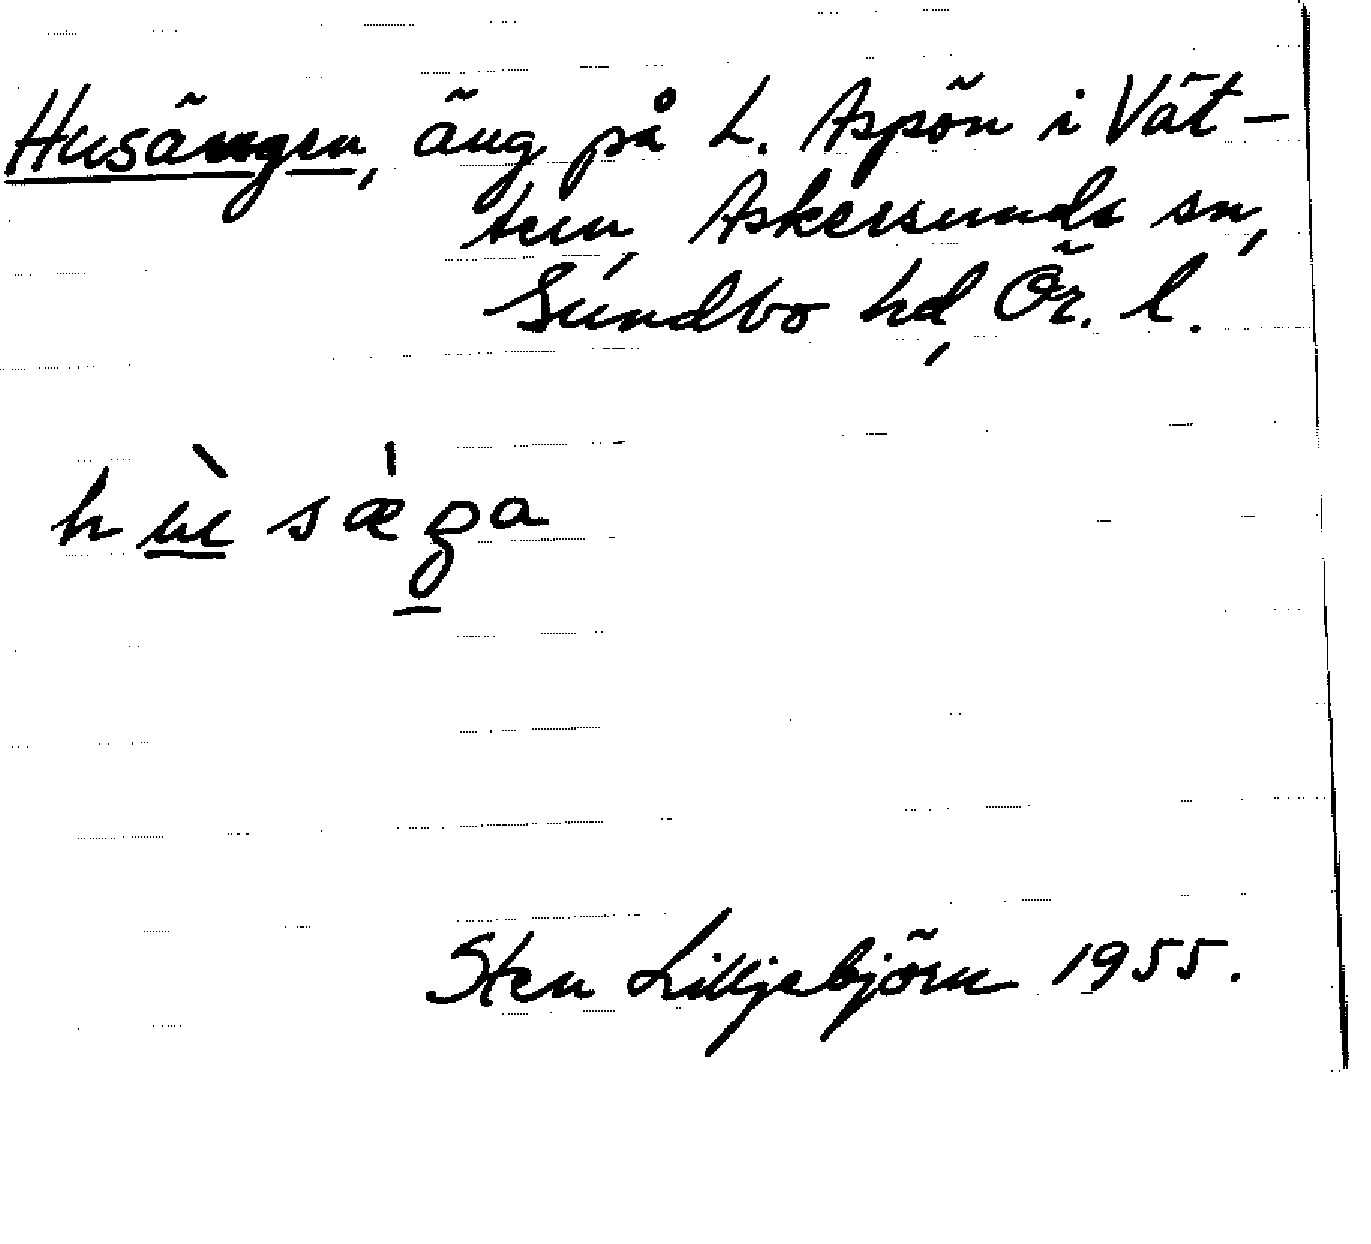 Husängen, äng på L. Aspön i Vät-
tern, Askersunds sn,
Sundbo hd, Ör. l.
hùsǽga
Sten Lilljebjörn 1955.